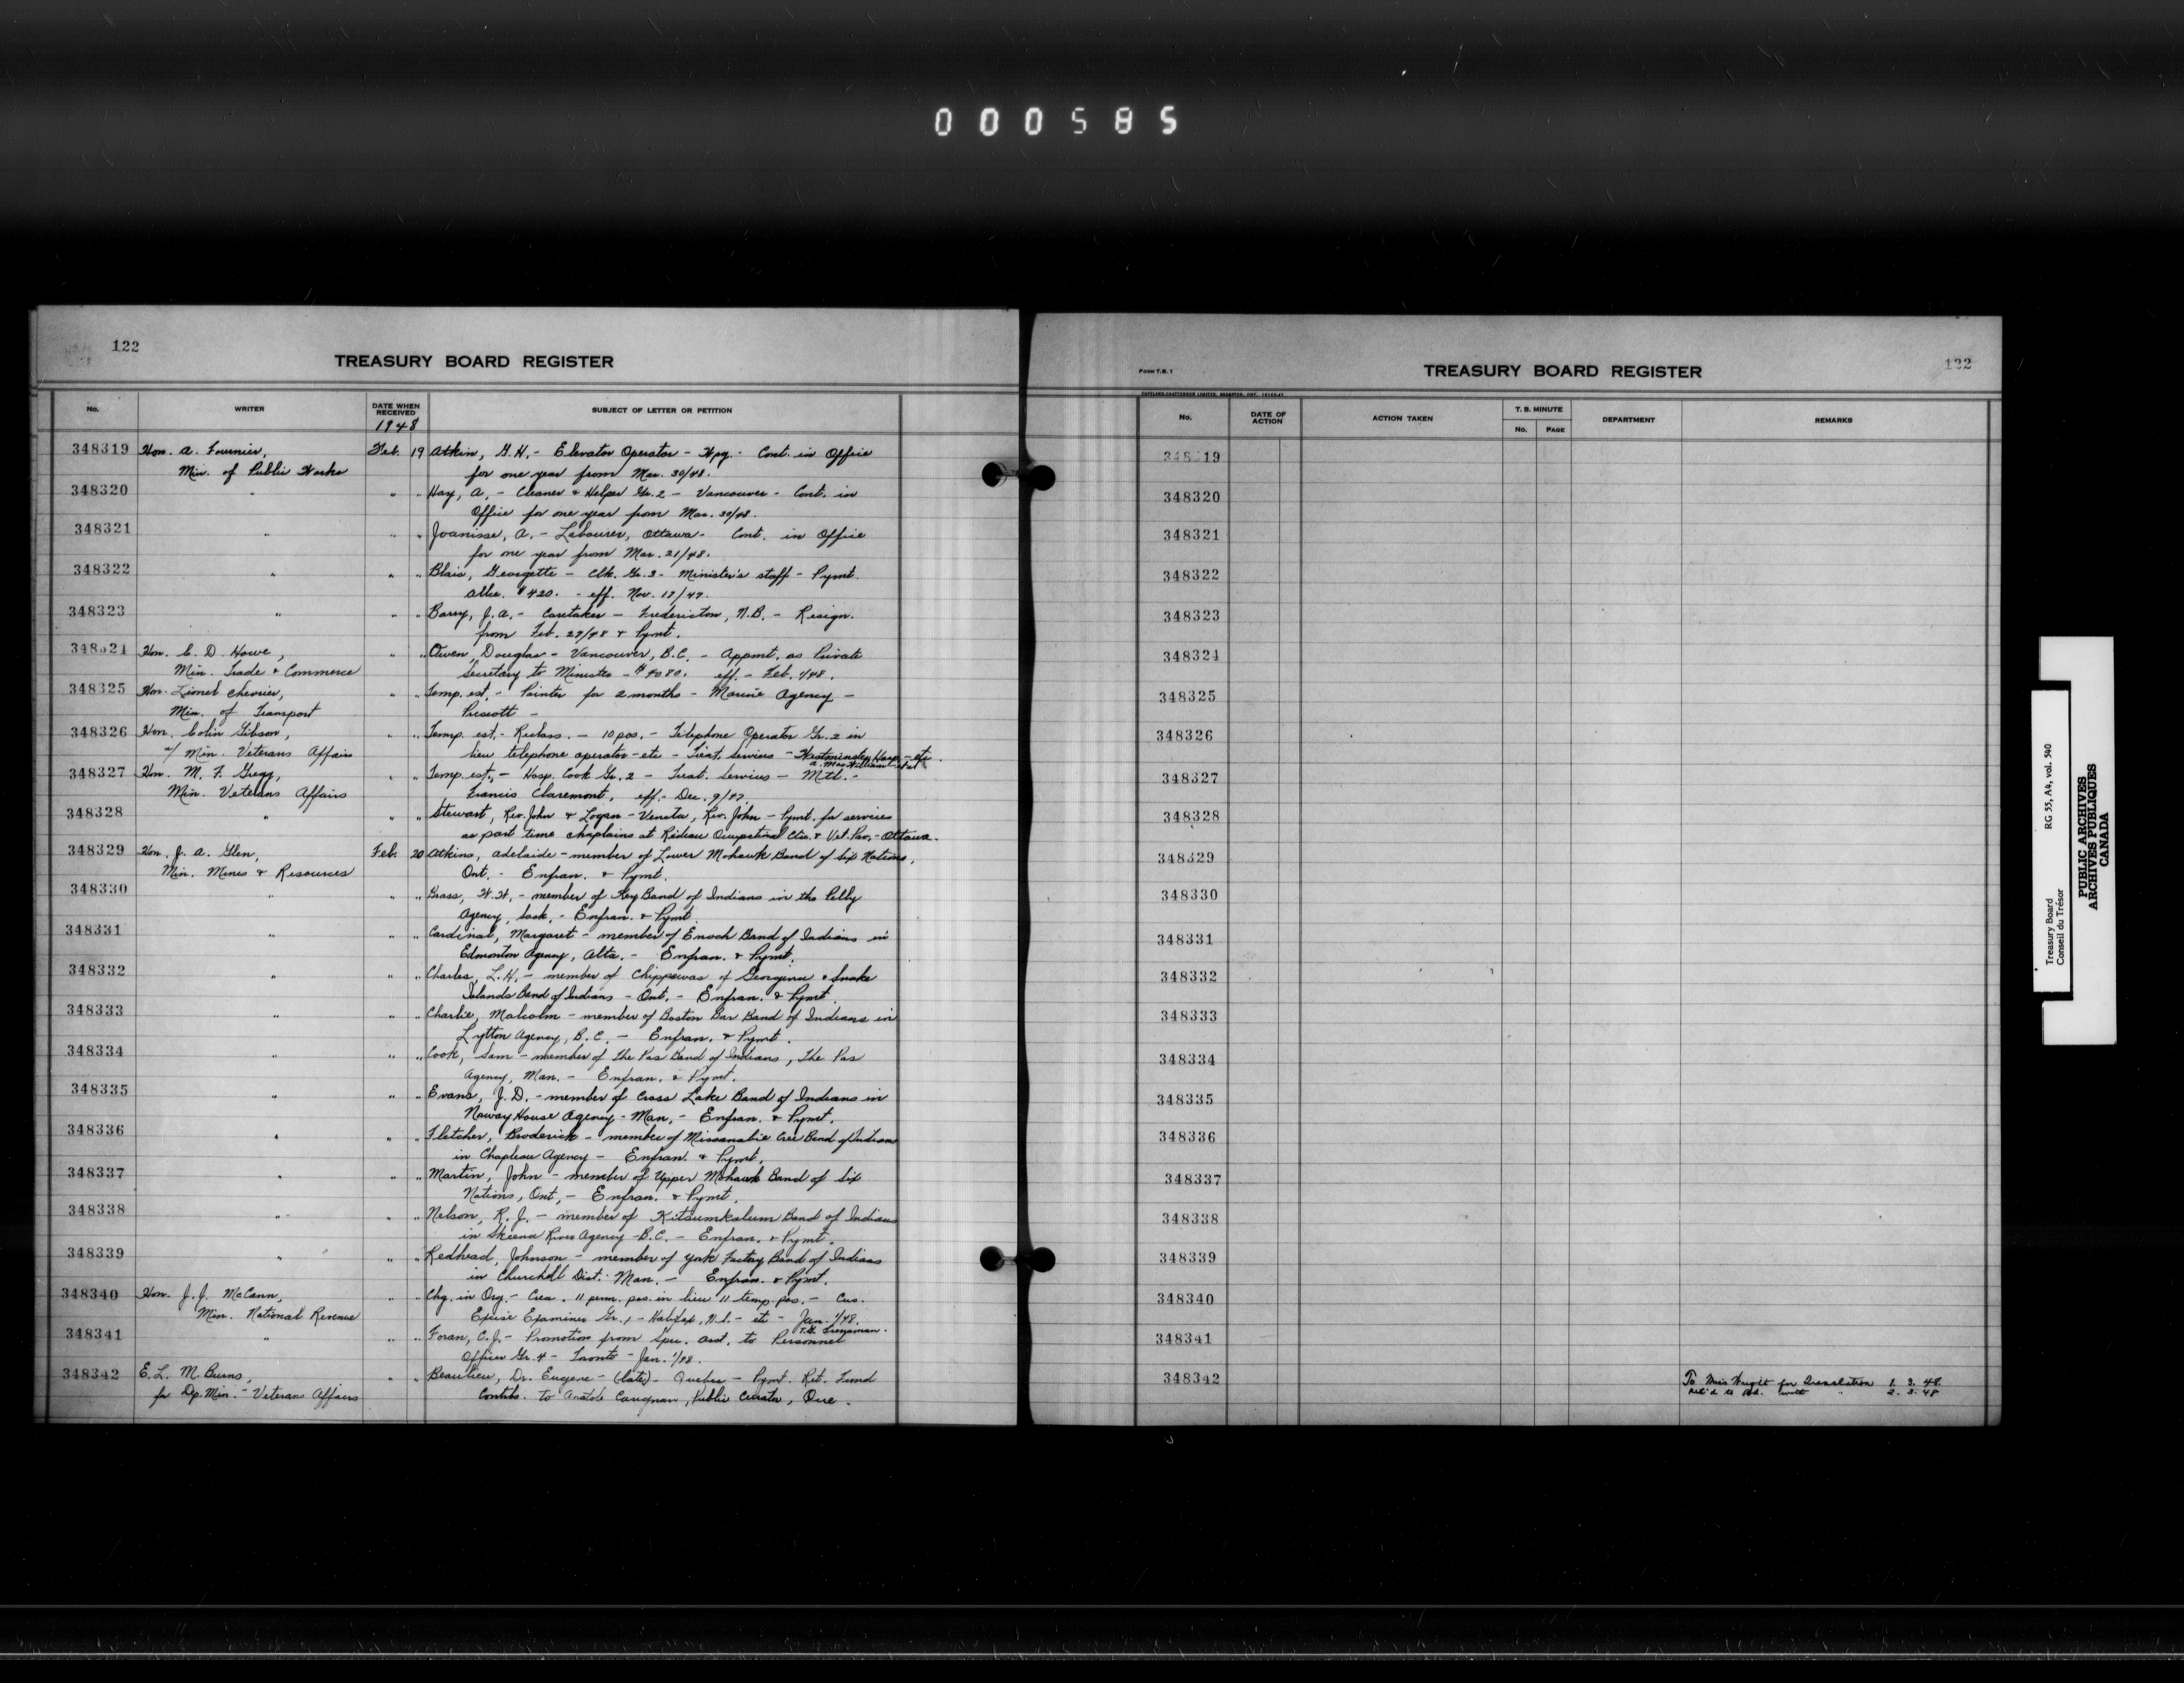 000585
122
TREASURY BOARD REGISTER
No. WRITER DATE WHEN RECEIVED SUBJECT OF LETTER OR PETITION
1948
348319 Hon. A. Fournier, Feb. 19 Atkin, G.H. - Elevator Operator - Wpg. - Cont. in Office
Min. of Public Works for one year from Mar. 30/48.
348320 " " " Hay, A. - Cleaner & Helper Gr. 2 - Vancouver - Cont. in
Office for one year from Mar. 30/48.
348321 " " " Joanisse, A. - Labourer, Ottawa - Cont. in Office
for one year from Mar. 21/48.
348322 " " " Blais, Georgette - Clk. Gr. 3 - Minister's staff - Pymt.
allce. $420. - eff. Nov. 17/47.
348323 " " " Barry, J.A. - Caretaker - Fredericton, N.B. - Resign.
from Feb. 29/48 & Pymt.
348324 Hon. C. D. Howe, " " Owen, Douglas - Vancouver, B.C. - Appmt. as Private
Min. Trade & Commerce Secretary to Minister - $4080. eff. - Feb. 1/48.
348325 Hon. Lionel Chevrier, " " Temp. est. - Painter for 2 months - Marine Agency -
Min. of Transport Prescott -
348326 Hon. Colin Gibson, " " Temp. est. - Reclass. - 10 pos. - Telephone Operator Gr. 2 in
a/ Min. Veterans Affairs lieu telephone operator - etc - Treat. Services - Westminster Hosp. - etc.
A. MacWilliam et al
348327 Hon. M. F. Gregg, " " Temp. est. - Hosp. Cook Gr. 2 - Treat. Services - Mtl. -
Min. Veterans Affairs Francis Claremont, eff. - Dec. 9/47.
348328 " " " Stewart, Rev. John & Logan - Vencta, Rev. John - Pymt. for services
as part time chaplains at Rideau Occupational Ctre. & Vet. Pav. - Ottawa.
348329 Hon. J. A. Glen, Feb. 20 Atkins, Adelaide - member of Lower Mohawk Band of Six Nations,
Min. Mines & Resources Ont. - Enfran. & Pymt.
348330 " " " Brass, W.W. - member of Key Band of Indians in the Pelly
Agency, Sask. - Enfran. & Pymt.
348331 " " " Cardinal, Margaret - member of Enoch Band of Indians in
Edmonton Agency, Alta. - Enfran. & Pymt.
348332 " " " Charles, L.H. - member of Chippewas of Georgina & Snake
Islands Band of Indians - Ont. - Enfran. & Pymt.
348333 " " " Charlie, Malcolm - member of Boston Bar Band of Indians in
Lytton Agency, B.C. - Enfran. & Pymt.
348334 " " " Cook, Sam - member of The Pas Band of Indians, The Pas
Agency, Man. - Enfran. & Pymt.
348335 " " " Evans, J.D. - member of Cross Lake Band of Indians in
Norway House Agency - Man. - Enfran. & Pymt.
348336 " " " Fletcher, Broderick - member of Missanabie Cree Band of Indians
in Chapleau Agency - Enfran. & Pymt.
348337 " " " Martin, John - member of Upper Mohawk Band of Six
Nations, Ont. - Enfran. & Pymt.
348338 " " " Nelson, R.J. - member of Kitsumkalum Band of Indians
in Skeena River Agency - B.C. - Enfran. & Pymt.
348339 " " " Redhead, Johnson - member of York Factory Band of Indians
in Churchill Dist. Man. - Enfran. & Pymt.
348340 Hon. J.J. McCann, " " Chg. in Org. - Crea. 11 perm. pos. in lieu 11 temp. pos. - Cus.
Min. National Revenue Excise Examiner Gr. 1 - Halifax, N.S. - etc - Jan. 1/48.
348341 " " " Foran, C.J. - Promotion from Spec. Asst. to Personnel
Officer Gr. 4 - Toronto - Jan. 1/48.
348342 E. L. M. Burns, " " Beaulieu, Dr. Eugene - (late) - Quebec - Pymt. Ret. Fund
for Dp. Min. - Veterans Affairs Contribs. to Anatole Caugnan, Public Curator, Que.
FORM T.B. 1
TREASURY BOARD REGISTER
122
No. DATE OF ACTION ACTION TAKEN T. B. MINUTE No. PAGE DEPARTMENT REMARKS
348319
348320
348321
348322
348323
348324
348325
348326
348327
348328
348329
348330
348331
348332
348333
348334
348335
348336
348337
348338
348339
348340
348341
348342 To Miss Wright for Translation 1. 3. 48
Ret'd to Bd. with " 2. 3. 48
Treasury Board RG 55, A4, vol. 540
Conseil du Trésor
PUBLIC ARCHIVES
ARCHIVES PUBLIQUES
CANADA